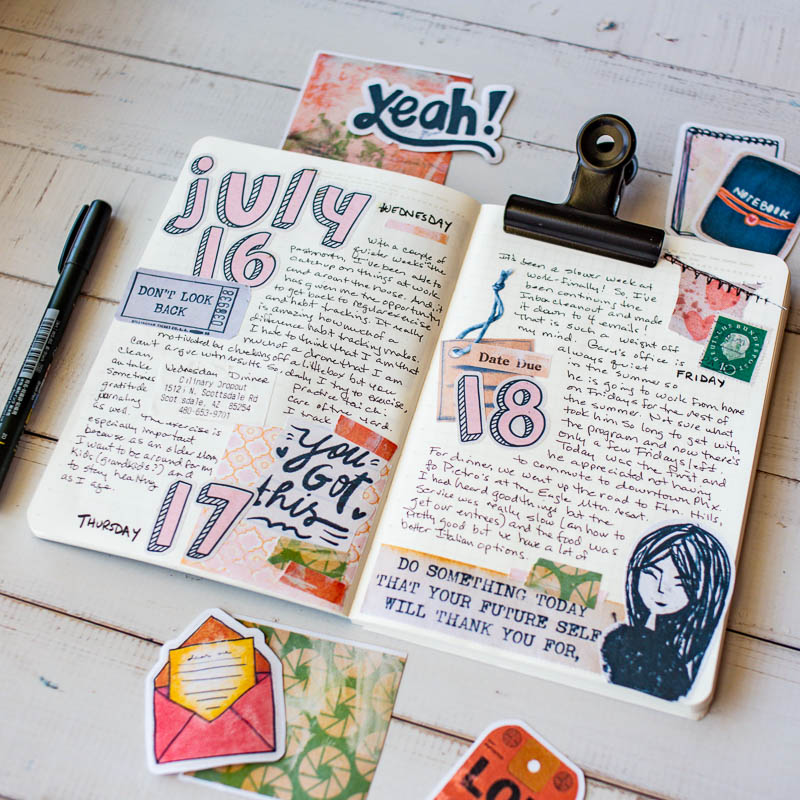 Yeah!
july
16
WEDNESDAY
DON'T LOOK
BACK
With a couple of
quieter weeks the
past month, I've been able to
catch up on things at work
and around the house. And it
has given me the opportunity
get back to regular exercise
and habit tracking. It really
is amazing how much of a
difference habit tracking makes.
I hate to think that I am that
much of a drone that I am
motivated by checking off a little box, but yea,
can't argue with results. So, daily I try to exercise,
clean,
Wednesday Dinner
Culinary Dropout
15125 N. Scottsdale Rd
Scottsdale, AZ 85254
480-653-9701
practice tai chi
care of the yard.
sometimes
gratitude
journaling
as well. The exercise is
especially important
because as an older
I want to be around for my
kids (grandkids?) and
to stay healthy
as I age.
You
Got
this
THURSDAY
17
It's been a slower week at
work - finally! So, I've
been continuing the
Inbox cleanout and made
it down to 1 email!
It is such a weight off
my mind. Gary's office is
always quiet
in the summer so
FRIDAY
he is going to work from home
on Fridays for the rest of
the summer. Not sure what
took him so long to get with
the program and now there's
only a few Fridays left.
Today was the first and
he appreciated not having
to commute to downtown Phx.
Date Due
18
For dinner we went up the road to Ftn. Hills,
to Pietro's at the Eagle Mtn. resort.
I had heard good things but the
service was really slow (an hour to
get our entrees) and the food was
pretty good but we have a lot of
better Italian options.
DEUTSCHE BUNDESPOST
NOTEBOOK
DO SOMETHING TODAY
THAT YOUR FUTURE SELF
WILL THANK YOU FOR,
dear me